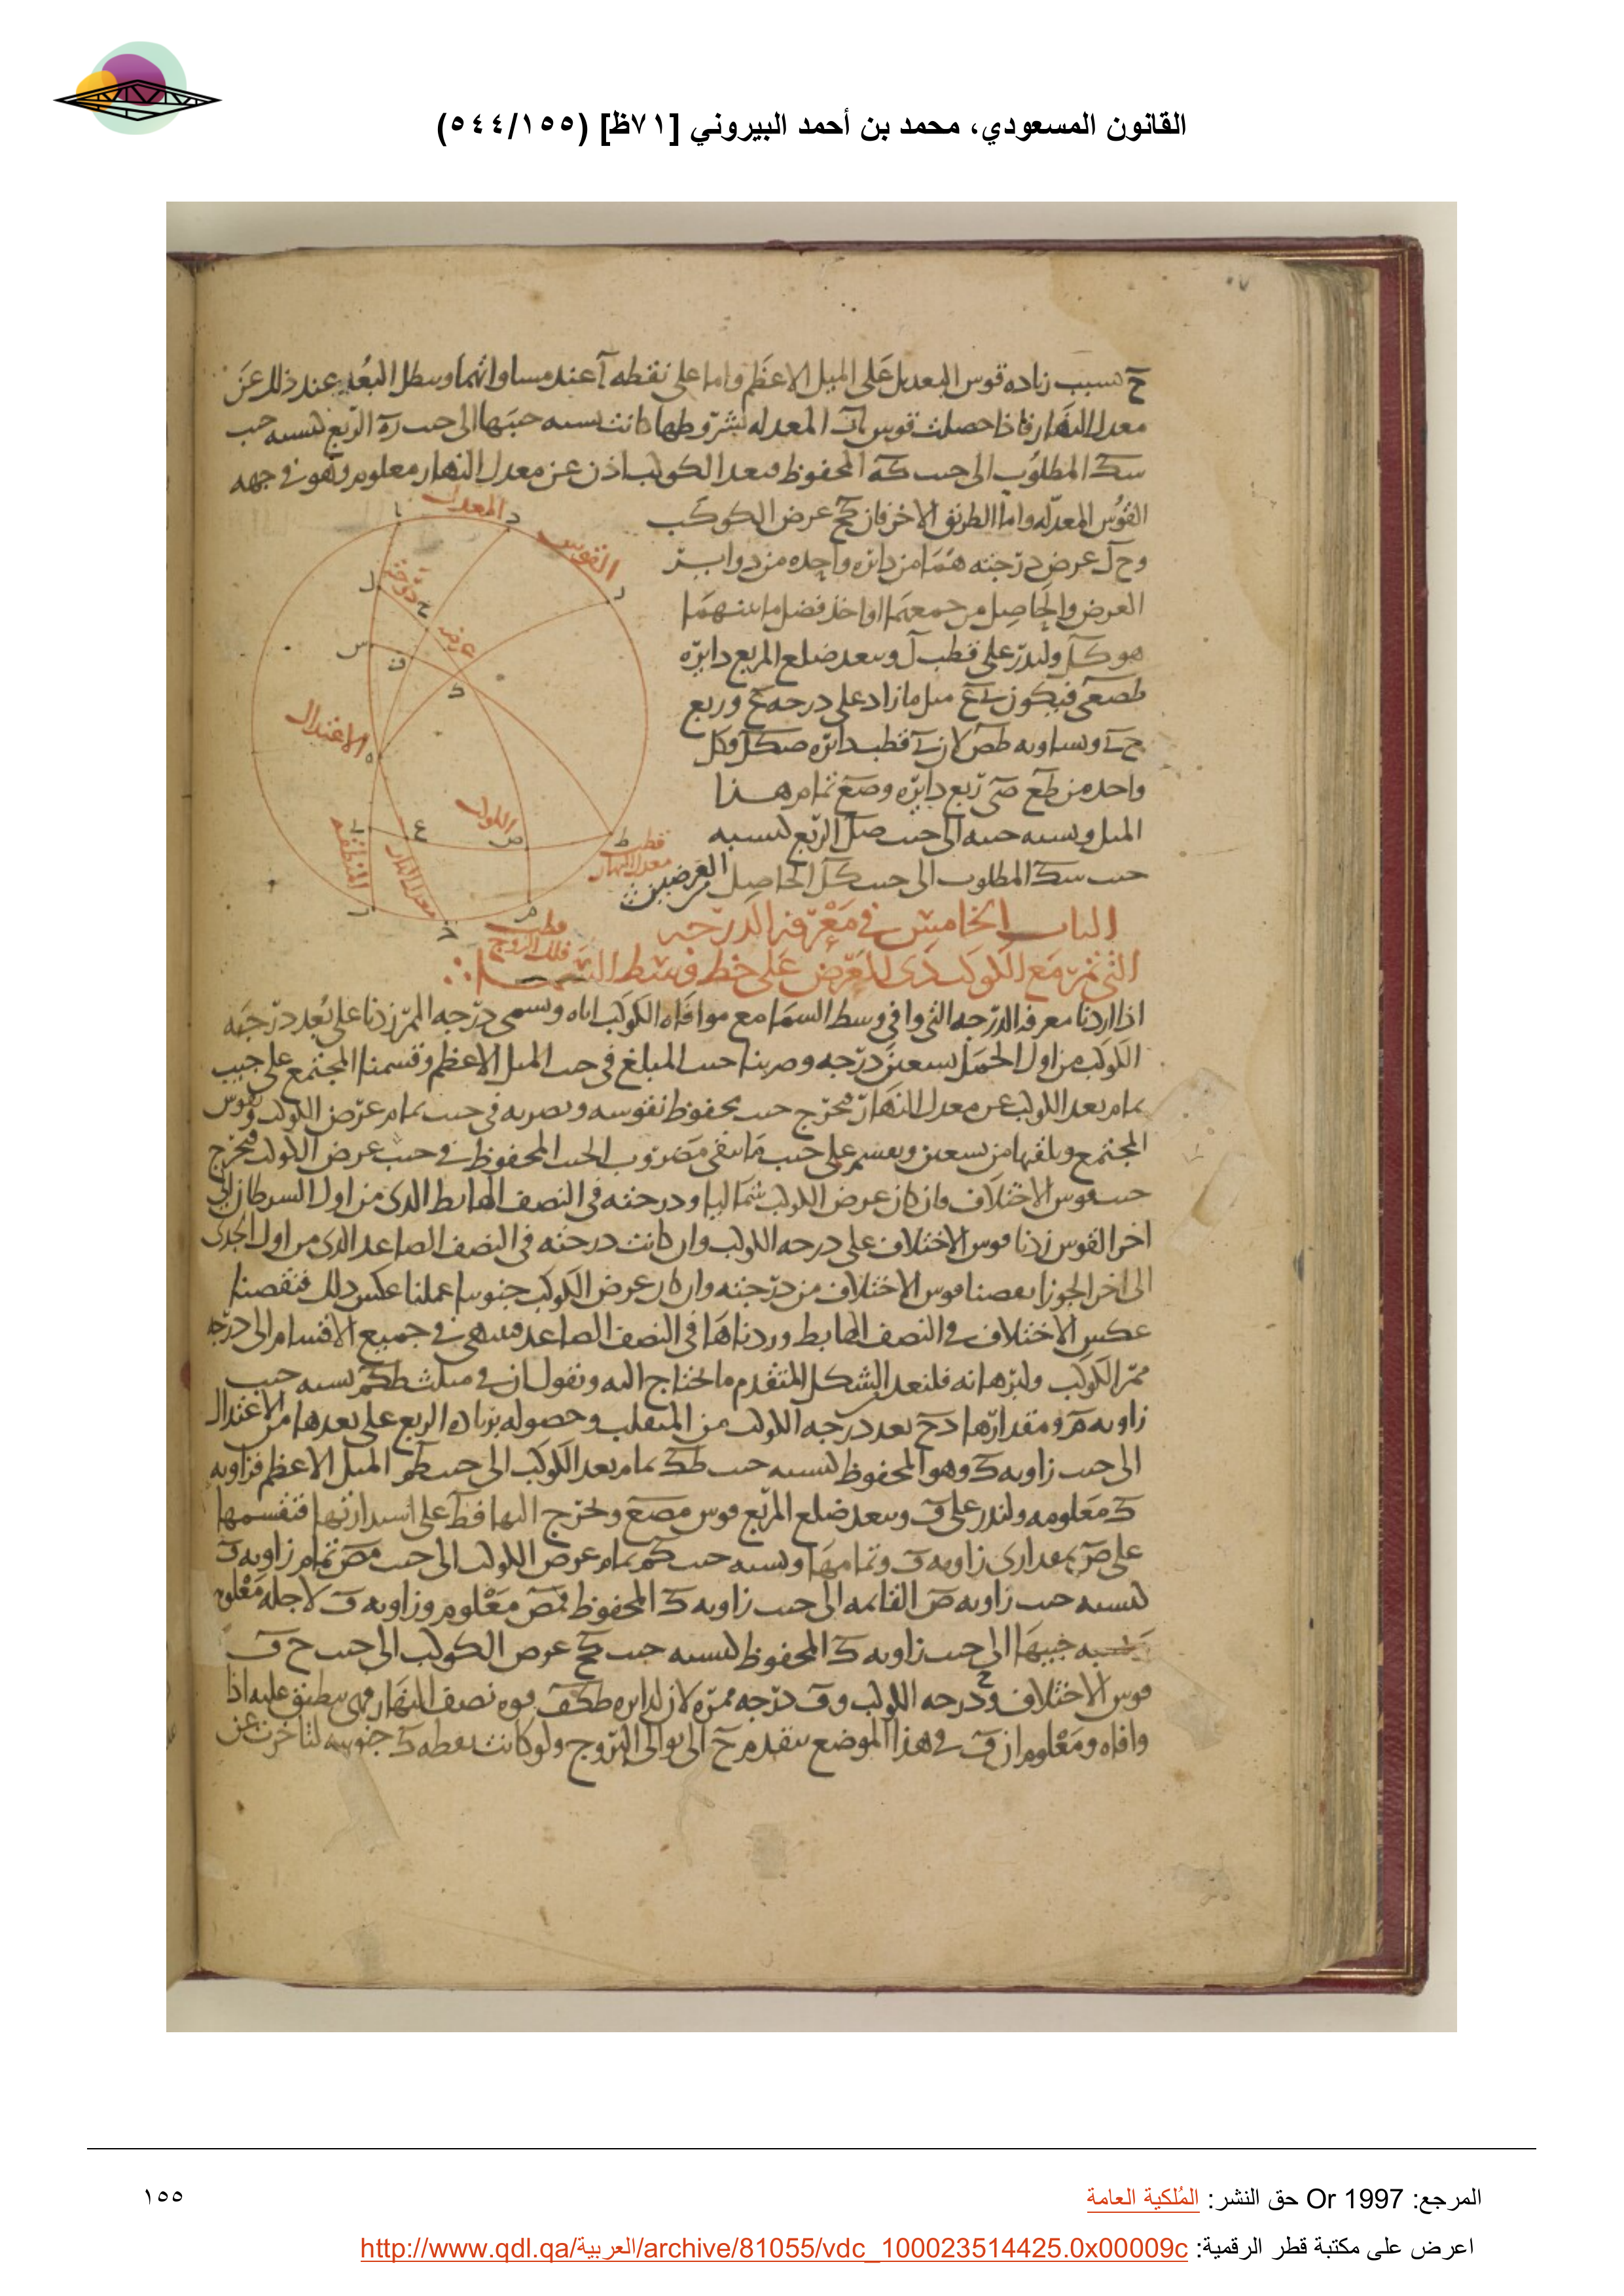 القانون المسعودي، محمد بن أحمد البيروني [٧١ظ] (٥٤٤/١٥٥)
ح بسبب زياده قوس التعديل على الميل الاعظم واما على نقطه آ عند مساواتهما وسطل البعد عند ذلك عن
معدل النهار فاذا حصلت قوس المعدله بشروطها كانت نسبه جيبها الى جيب ره الربع كنسبه جيب
سك المطلوب الى جيب كه المحفوظ فبعد الكوكب اذن عن معدل النهار معلوم وهو في جهه
القوس المعدله واما الطريق الاخر فان كح عرض الكوكب
وح ل عرض درجته هما من دائره واحده من دوائر
العرض والحاصل من جمعهما او اخذ فضل ما بينهما
هو كل ولندر على قطب ل وببعد ضلع المربع دايره
طصعى فيكون ىع ميل ما زاد على درجه ح وربع
ح ى وتساويه طص لان ى قطب دائره صكل وكل
واحده من طع صى ربع دايره وصع تمام هذا
الميل ونسبه جيبه الى جيب صل الربع كنسبه
جيب سك المطلوب الى جيب كل الحاصل من العرضين
المعدل
القوس
درجته
عرض
الاعتدال
الكوكب
المنطقه
معدل النهار
قطب
معدل النهار
قطب
فلك البروج
الباب الخامس في معرفه الدرجه
التي تمر مع الكوكب ذي العرض على خط وسط السما
اذا اردنا معرفه الدرجه التي وافي وسط السما مع موافاه الكوكب اياه وتسمى درجه الممر زدنا على بعد درجته
الكوكب من اول الحمل تسعين درجه وضربنا جيب المبلغ في جيب الميل الاعظم وقسمنا المجتمع على جيب
تمام بعد الكوكب عن معدل النهار فيخرج جيب محفوظ نقوسه ونضربه في جيب تمام عرض الكوكب ونقوس
المجتمع ونلقيها من تسعين ونقسم على جيب ما يبقى مضروب الجيب المحفوظ في جيب عرض الكوكب فيخرج
جيب قوس الاختلاف فان كان عرض الكوكب شماليا ودرجته في النصف الهابط الذي من اول السرطان الى
اخر القوس زدنا قوس الاختلاف على درجه الكوكب وان كانت درجته في النصف الصاعد الذي من اول الجدى
الى اخر الجوزا نقصنا قوس الاختلاف من درجته وان كان عرض الكوكب جنوبيا عملنا عكس ذلك فنقصنا
عكس الاختلاف في النصف الهابط وزدناها في النصف الصاعد فننتهى في جميع الاقسام الى درجه
ممر الكوكب ولبرهانه فلنعد الشكل المتقدم ما نحتاج اليه ونقول ان في مثلث طكم نسبه جيب
زاويه م ومقدارها دح بعد درجه الكوكب من المنقلب وحصوله بزياده الربع على بعدها من الاعتدال
الى جيب زاويه ك وهو المحفوظ كنسبه جيب طك تمام بعد الكوكب الى جيب طم الميل الاعظم فزاويه
ك معلومه ولندر على ف وببعد ضلع المربع قوس مصع ونخرج اليها فط على استدارتها فتقسمها
على ص بمقدارى زاويه ف وتمامها ونسبه جيب كم تمام عرض الكوكب الى جيب مص تمام زاويه ف
كنسبه جيب زاويه ص القائمه الى جيب زاويه ك المحفوظ فمص معلوم وزاويه ف لاجله معلومه
ونسبه جيبها الى جيب زاويه ك المحفوظ كنسبه جيب كح عرض الكوكب الى جيب ح ف
قوس الاختلاف وح درجه الكوكب وف درجه ممره لان لدايره طكف قوه نصف النهار فهى ينطبق عليه اذا
وافاه ومعلوم ان ف في هذا الموضع يتقدم ح الى توالى البروج ولو كانت نقطه ك جنوبيه لتاخرت عن
المرجع: Or 1997 حق النشر: المُلكية العامة
١٥٥
اعرض على مكتبة قطر الرقمية: http://www.qdl.qa/العربية/archive/81055/vdc_100023514425.0x00009c